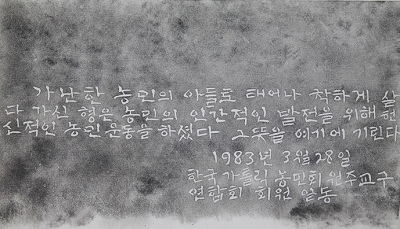 가난한 농민의 아들로 태어나 착하게 살
다 가신 형은 농민의 인간적인 발전을 위해 헌
신적인 농민운동을 하셨다 그 뜻을 여기에 기린다
1983년 3월 28일
한국가톨릭 농민회 원주교구
연합회 회원 일동